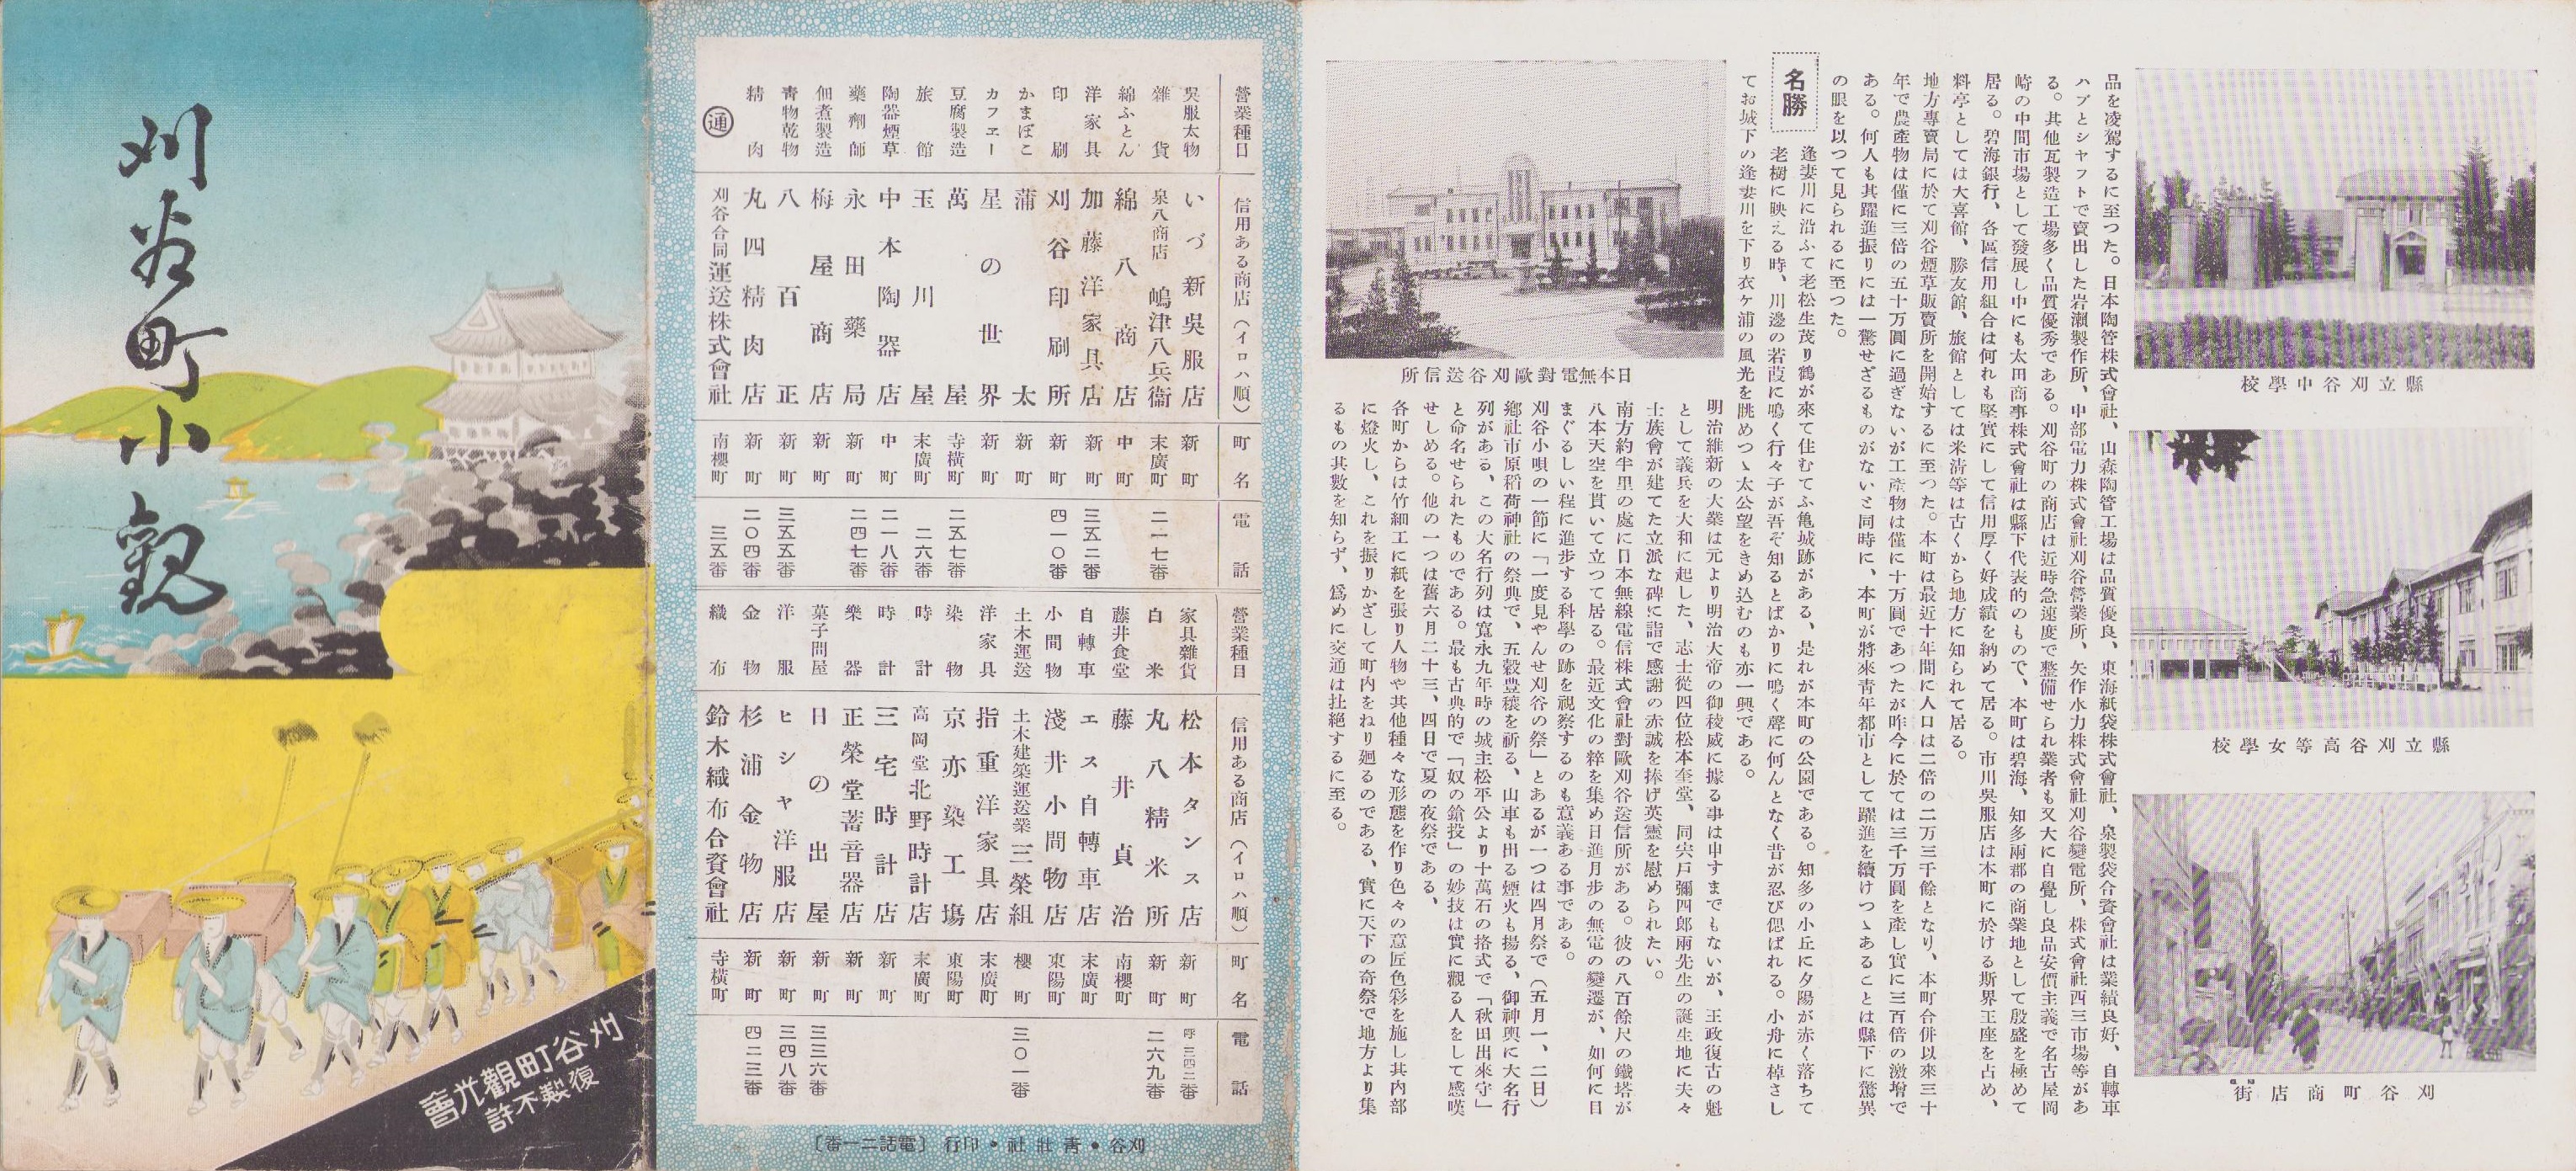 刈谷町小觀
刈谷町觀光會
復製不許
營業種目 信用ある商店（イロハ順） 町名 電話
吳服太物 いづ新吳服店 新町
雜貨 泉八商店 嶋津八兵衞 末廣町 二一七番
綿ふとん 綿八商店 中町
洋家具 加藤洋家具店 新町 三五二番
印刷 刈谷印刷所 新町 四一〇番
かまぼこ 蒲太 新町
カフヱー 星の世界 新町
豆腐製造 萬屋 寺橫町 二五七番
旅館 玉川屋 末廣町 二六番
陶器煙草 中本陶器店 中町 二一八番
藥劑師 永田藥局 新町 二四七番
佃煮製造 梅屋商店 新町
靑物乾物 八百正 新町 三五五番
精肉 丸四精肉店 新町 二〇四番
通 刈谷合同運送株式會社 南櫻町 三五番
營業種目 信用ある商店（イロハ順） 町名 電話
家具雜貨 松本タンス店 新町 呼三四二番
白米 丸八精米所 新町 二六九番
藤井食堂 藤井貞治 南櫻町
自轉車 エス自轉車店 末廣町
小間物 淺井小間物店 東陽町
土木運送 土木建築運送業 三榮組 櫻町 三〇一番
洋家具 指重洋家具店 末廣町
染物 京亦染工場 東陽町
時計 高岡堂北野時計店 末廣町
時計 三宅時計店 新町
樂器 正榮堂蓄音器店 新町
菓子問屋 日の出屋 新町 三三六番
洋服 ヒシヤ洋服店 新町 三四八番
金物 杉浦金物店 新町 四二三番
織布 鈴木織布合資會社 寺橫町
刈谷・靑壯社・印行〔電話二一番〕
縣立刈谷中學校
縣立刈谷高等女學校
刈谷町商店街
品を凌駕するに至つた。日本陶管株式會社、山森陶管工場は品質優良、東海紙袋株式會社、泉製袋合資會社は業績良好、自轉車
ハブとシヤフトで賣出した岩瀨製作所、中部電力株式會社刈谷營業所、矢作水力株式會社刈谷變電所、株式會社西三市場等があ
る。其他瓦製造工場多く品質優秀である。刈谷町の商店は近時急速度で整備せられ業者も又大に自覺し良品安價主義で名古屋岡
崎の中間市場として發展し中にも太田商事株式會社は縣下代表的のもので、本町は碧海、知多兩郡の商業地として殷盛を極めて
居る。碧海銀行、各區信用組合は何れも堅實にして信用厚く好成績を納めて居る。市川吳服店は本町に於ける斯界王座を占め、
料亭としては大喜館、勝友館、旅館としては米淸等は古くから地方に知られて居る。
地方專賣局に於て刈谷煙草販賣所を開始するに至つた。本町は最近十年間に人口は二倍の二万三千餘となり、本町合併以來三十
年で農產物は僅に三倍の五十万圓に過ぎないが工產物は僅に十万圓であつたが昨今に於ては三千万圓を產し實に三百倍の激增で
ある。何人も其躍進振りには一驚せざるものがないと同時に、本町が將來靑年都市として躍進を續けつゝあることは縣下に驚異
の眼を以つて見られるに至つた。
名勝
逢妻川に沿ふて老松生茂り鶴が來て住むてふ亀城跡がある、是れが本町の公園である。知多の小丘に夕陽が赤く落ちて
老樹に映える時、川邊の若葭に鳴く行々子が吾ぞ知るとばかりに鳴く聲に何んとなく昔が忍び偲ばれる。小舟に棹さし
てお城下の逢妻川を下り衣ケ浦の風光を眺めつゝ太公望をきめ込むのも亦一興である。
日本無電對歐刈谷送信所
明治維新の大業は元より明治大帝の御稜威に據る事は申すまでもないが、王政復古の魁
として義兵を大和に起した、志士從四位松本奎堂、同宍戸彌四郎兩先生の誕生地に夫々
士族會が建てた立派な碑に詣で感謝の赤誠を捧げ英靈を慰められたい。
南方約半里の處に日本無線電信株式會社對歐刈谷送信所がある。彼の八百餘尺の鐵塔が
八本天空を貫いて立つて居る。最近文化の粹を集め日進月步の無電の變遷が、如何に目
まぐるしい程に進步する科學の跡を視察するのも意義ある事である。
刈谷小唄の一節に「一度見やんせ刈谷の祭」とあるが一つは四月祭で（五月一、二日）
鄕社市原稻荷神社の祭典で、五穀豊穰を祈る、山車も出る煙火も揚る、御神輿に大名行
列がある、この大名行列は寬永九年時の城主松平公より十萬石の挌式で「秋田出來守」
と命名せられたものである。最も古典的で「奴の鎗投」の妙技は實に觀る人をして感嘆
せしめる。他の一つは舊六月二十三、四日で夏の夜祭である、
各町からは竹細工に紙を張り人物や其他種々な形態を作り色々の意匠色彩を施し其内部
に燈火し、これを振りかざして町内をねり廻るのである、實に天下の奇祭で地方より集
るもの其數を知らず、爲めに交通は杜絕するに至る。